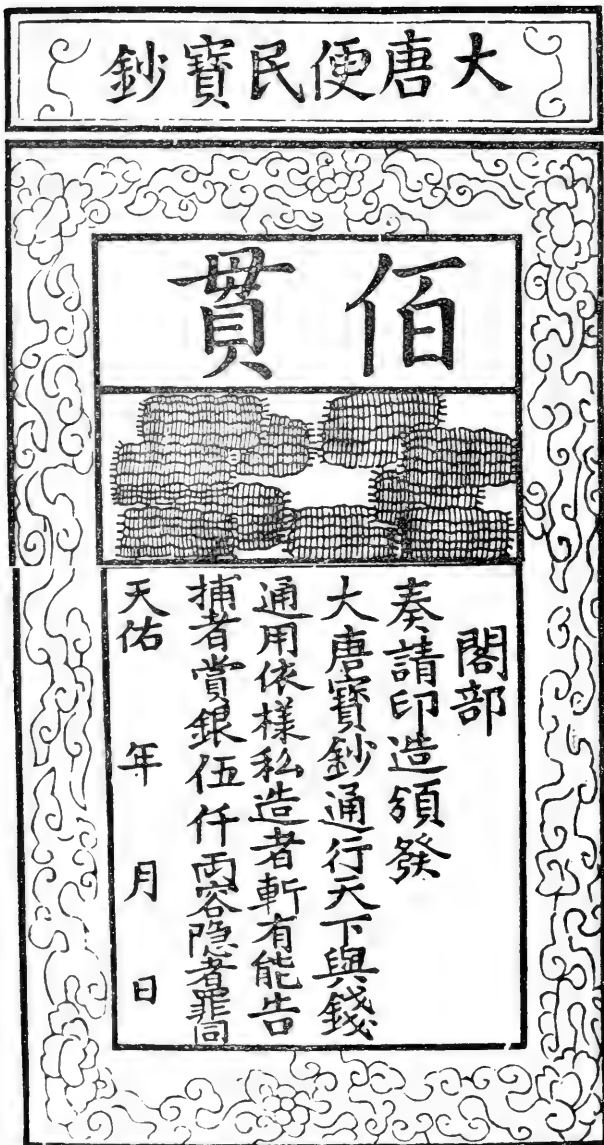 大唐便民寶鈔
佰貫
閣部
奏請印造頒發
大唐寶鈔通行天下與錢
通用依樣私造者斬有能告
捕者賞銀伍仟両容隐者罪同
天佑 年 月 日